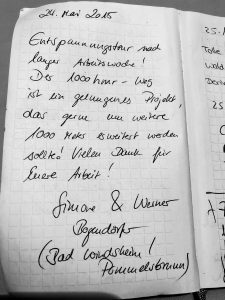 24. Mai 2015
Entspannungstour nach
langer Arbeitswoche!
Der 1000 hour - Weg
ist ein gelungenes Projekt,
das gerne um weitere
1000 Meter erweitert werden
sollte! Vielen Dank für
Eure Arbeit!
Simone & Werner
Bogendörfer
(Bad Windsheim /
Pommelsbrunn)
25.
Tolle
Wald
25